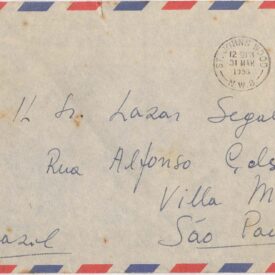 ST. JOHNS WOOD
12 30 PM
31 MAR
1955
N.W.8.
Il Sr. Lazar Segal
Rua Alfonso Cels
Villa M
São Pau
razil